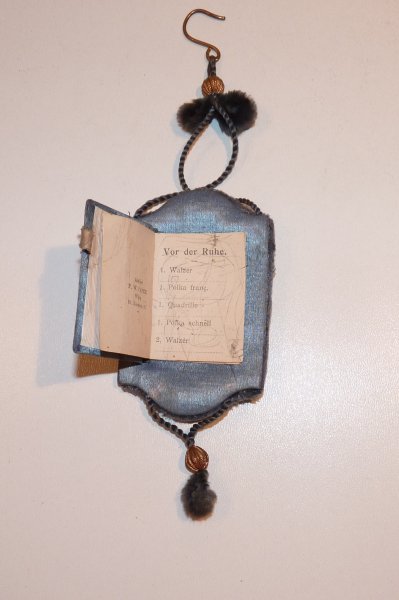 Vor der Ruhe.
1. Walzer
1. Polka franç.
1. Quadrille
1. Polka schnell
2. Walzer